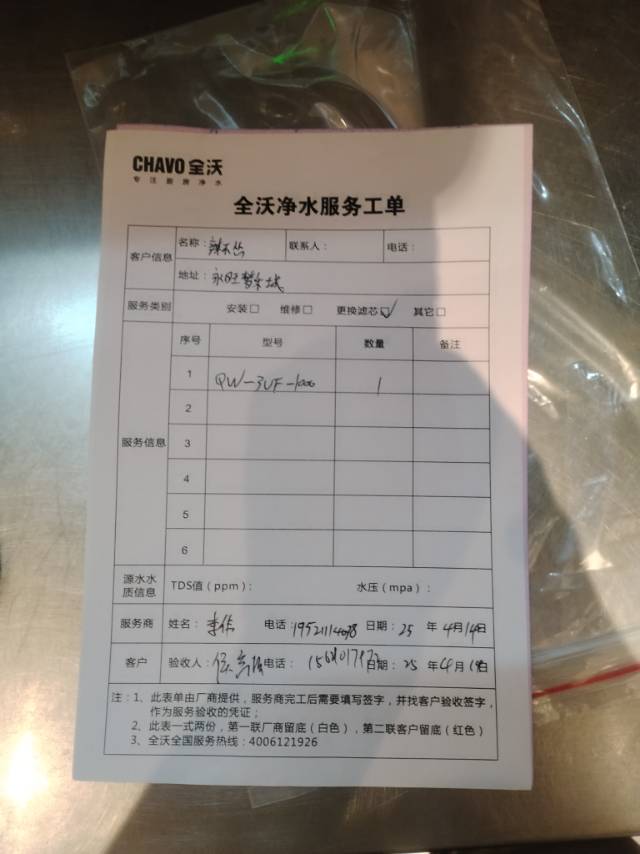 CHAVO 全沃
专注厨房净水
全沃净水服务工单
客户信息 名称：辣不怂 联系人： 电话：
地址：永旺梦乐城
服务类别 安装□ 维修□ 更换滤芯☑ 其它□
服务信息 序号 型号 数量 备注
1 QW-3UF-1000 1
2
3
4
5
6
源水水质信息 TDS值（ppm）： 水压（mpa）：
服务商 姓名：李伟 电话： 日期：25 年 4月14日
客户 验收人： 电话： 日期：25 年 4月14日
注：1、此表单由厂商提供，服务商完工后需要填写签字，并找客户验收签字，
作为服务验收的凭证；
2、此表一式两份，第一联厂商留底（白色），第二联客户留底（红色）
3、全沃全国服务热线：4006121926